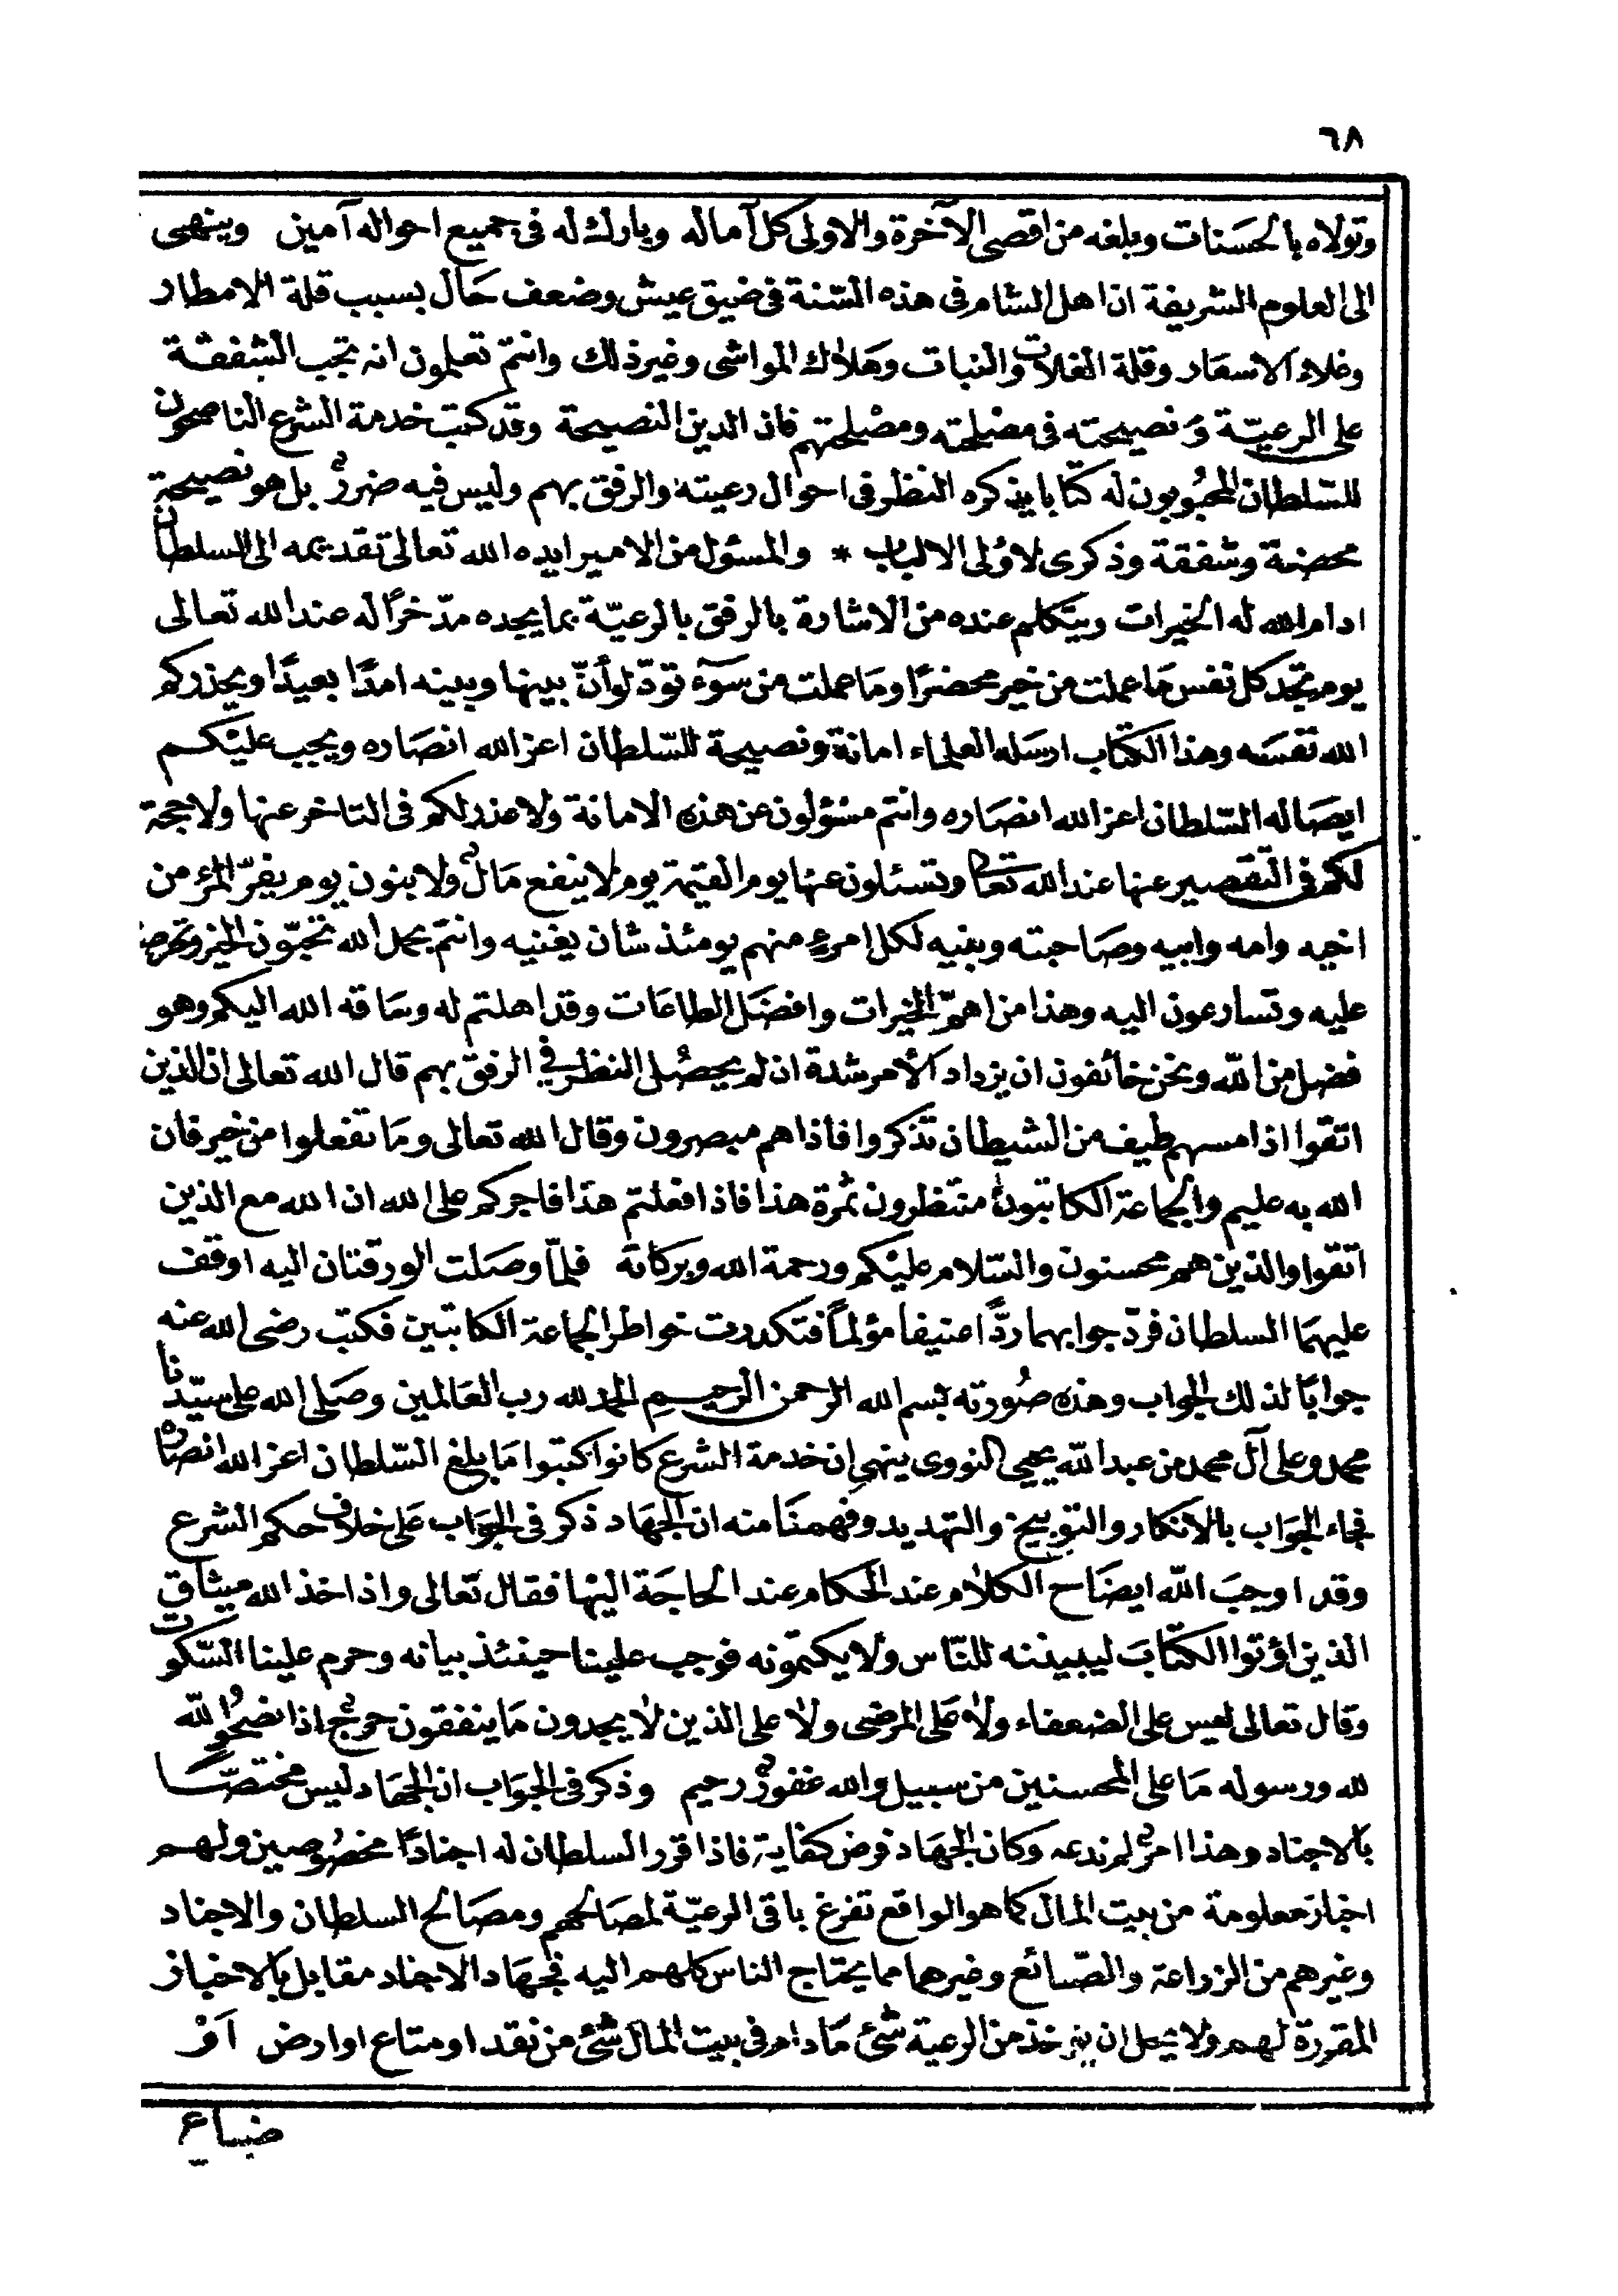 ٦٨
وتولاه بالحسنات وبلغه من اقصى الآخرة والاولى كل آماله وبارك له فى جميع احواله آمين وينهى
الى العلوم الشريفة ان اهل الشام فى هذه السّنة فى ضيق عيش وضعف حال بسبب قلة الامطار
وغلاء الاسعار وقلة الغلات والنبات وهلاك المواشى وغير ذلك وانتم تعلمون انه تجب الشفقة
على الرعيّة ونصيحته فى مصلحته ومصلحتهم فان الدين النصيحة وقد كتب خدمة الشرع الناصحون
للسّلطان المحبُوبون له كتابا يذكره النظر فى احوال رعيته والرفق بهم وليس فيه ضررٌ بل هو نصيحة
محضة وشفقة وذكرى لاوُلى الالباب * والمسئول من الامير ايده الله تعالى تقديمه الى السلطان
ادام الله له الخيرات ويتكلم عنده من الاشارة بالرفق بالرعيّة بما يجده مدّخرًا له عند الله تعالى
يوم تجد كل نفس ما عملت من خير محضرًا وما عملت من سوٓء تودّ لو أنّ بينها وبينه امدًا بعيدًا ويحذركم
الله نفسه وهذا الكتاب ارسله العلماء امانة ونصيحة للسّلطان اعز الله انصاره ويجب عليكم
ايصاله السّلطان اعز الله انصاره وانتم مسئولون عن هذه الامانة ولا عذر لكم فى التاخر عنها ولا حجة
لكم فى التقصير عنها عند الله تعالى وتسئلون عنها يوم القيمة يوم لا ينفع مالٌ ولا بنون يوم يفرّ المرء من
اخيه وامه وابيه وصاحبته وبنيه لكل امرءٍ منهم يومئذ شان يغنيه وانتم بحمد الله تحبّون الخير وتحرصون
عليه وتسارعون اليه وهذا من اهمّ الخيرات وافضل الطاعات وقد اهلتم له وساقه الله اليكم وهو
فضل من اللّه ونحن خائفون ان يزداد الأمر شدة ان لم يحصُل النظر في الرفق بهم قال الله تعالى ان الذين
اتقوا اذا مسهم طيف من الشيطان تذكروا فاذا هم مبصرون وقال الله تعالى وما تفعلوا من خير فان
الله به عليم والجماعة الكاتبون منتظرون ثمرة هذا فاذا فعلتم هذا فاجركم على الله ان الله مع الذين
اتقوا والذين هم محسنون والسّلام عليكم ورحمة الله وبركاته فلمّا وصلت الورقتان اليه اوقف
عليهما السلطان فردّ جوابهما ردًّا عنيفا مؤلمًا فتكدرت خواطر الجماعة الكاتبين فكتب رضى الله عنه
جوابًا لذلك الجواب وهذه صُورته بسم الله الرحمن الرحيم الحمد لله رب العالمين وصلى الله على سيّدنا
محمد وعلى آل محمد من عبد اللّه يحيى النووى ينهى ان خدمة الشرع كانوا كتبوا ما بلغ السّلطان اعز الله انصاره
فجاء الجواب بالانكار والتوبيخ والتهديد وفهمنا منه ان الجهاد ذكر فى الجواب على خلاف حكم الشرع
وقد اوجب اللّه ايضاح الكلام عند الحكام عند الحاجة اليها فقال تعالى واذ اخذ الله ميثاق
الذين اوُتوا الكتاب ليبيننه للنّاس ولا يكتمونه فوجب علينا حينئذ بيانه وحرم علينا السّكوت
وقال تعالى ليس على الضعفاء ولا على المرضى ولا على الذين لا يجدون ما ينفقون حرجٌ اذا نصحُوا للّه
لله ورسوله ما على المحسنين من سبيل والله غفورٌ رحيم وذكر فى الجواب ان الجهاد ليس مختصّا
بالاجناد وهذا امرٌ لم ندعه وكان الجهاد فرض كفاية فاذا قرر السلطان له اجنادًا مخصُوصين ولهم
اخباز معلومة من بيت المال كما هو الواقع تفرغ باقى الرعيّة لمصالحهم ومصالح السلطان والاجناد
وغيرهم من الزراعة والصّنائع وغيرهما مما يحتاج الناس كلهم اليه فجهاد الاجناد مقابل بالاخباز
المقررة لهم ولا يحل ان يؤخذ من الرعية شئ ما دام فى بيت المال شئ من نقد او متاع او ارض اَوْ
ضياع